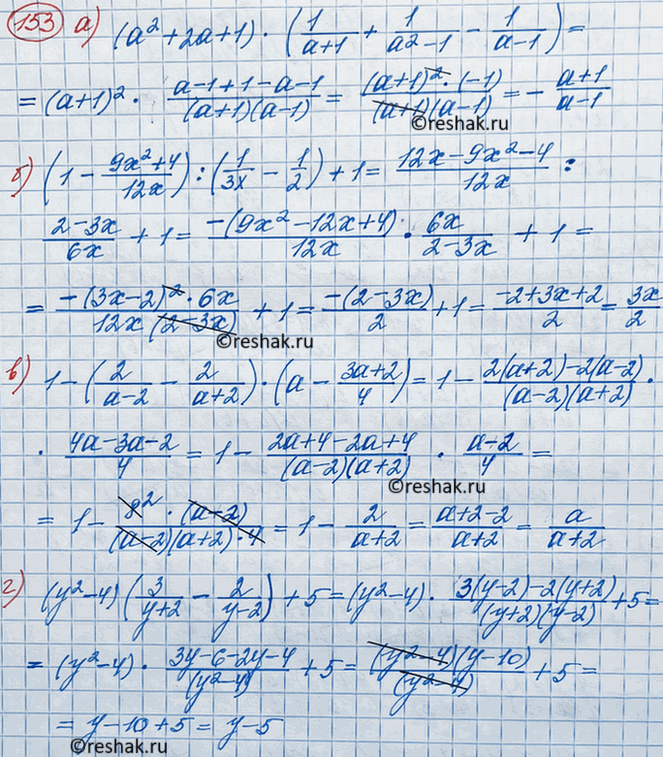 153 а) (a² + 2a + 1) · (1/(a+1) + 1/(a²−1) − 1/(a−1)) =
= (a+1)² · (a−1+1−a−1)/((a+1)(a−1)) = ((a+1)² · (−1))/((a+1)(a−1)) = − (a+1)/(a−1)
©reshak.ru
б) (1 − (9x²+4)/12x) : (1/3x − 1/2) + 1 = (12x−9x²−4)/12x :
(2−3x)/6x + 1 = −(9x²−12x+4)/12x · 6x/(2−3x) + 1 =
= (−(3x−2)² · 6x)/(12x(2−3x)) + 1 = −(2−3x)/2 + 1 = (−2+3x+2)/2 = 3x/2
©reshak.ru
в) 1 − (2/(a−2) − 2/(a+2)) · (a − (3a+2)/4) = 1 − (2(a+2)−2(a−2))/((a−2)(a+2)) ·
· (4a−3a−2)/4 = 1 − (2a+4−2a+4)/((a−2)(a+2)) · (a−2)/4 =
©reshak.ru
= 1 − (8² · (a−2))/((a−2)(a+2) · 4) = 1 − 2/(a+2) = (a+2−2)/(a+2) = a/(a+2)
г) (y²−4)(3/(y+2) − 2/(y−2)) + 5 = (y²−4) · (3(y−2)−2(y+2))/((y+2)(y−2)) + 5 =
= (y²−4) · (3y−6−2y−4)/(y²−4) + 5 = ((y²−4)(y−10))/(y²−4) + 5 =
= y−10+5 = y−5
©reshak.ru